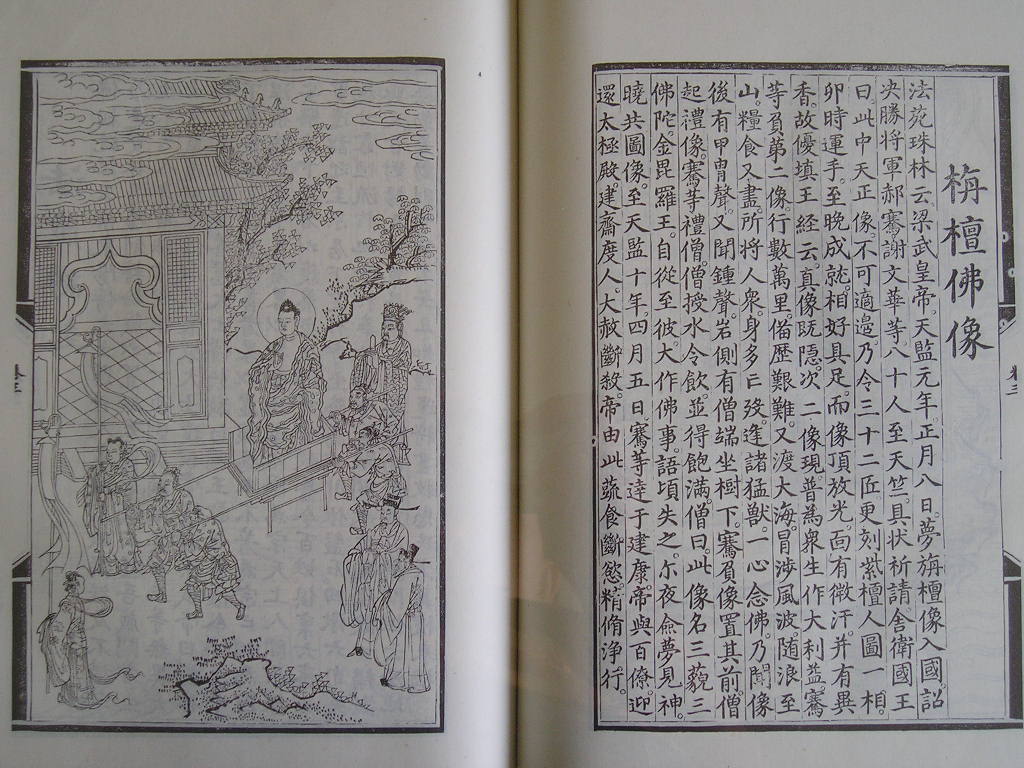 栴檀佛像
法苑珠林云。梁武皇帝。天監元年。正月八日。夢旃檀像入國。詔
决勝將軍郝騫。謝文華等。八十人至天竺。具状祈請。舍衛國王
曰。此中天正像。不可適邊。乃令三十二匠。更刻紫檀。人圖一相。
卯時運手。至晚成就。相好具足。而像頂放光。面有微汗。并有異
香。故優填王經云。真像既隱。次二像現。普為衆生。作大利益。騫
等負第二像。行數萬里。俻歷艱難。又渡大海。冒涉風波。随浪至
山。糧食又盡。所將人衆。身多亡歿。逢諸猛獸。一心念佛。乃聞像
後有甲冑聲。又聞鍾聲。岩側有僧端坐樹下。騫負像置其前。僧
起禮像。騫等禮僧。僧授水令飲。並得飽滿。僧曰。此像名三藐三
佛陀。金毘羅王自從至彼。大作佛事。語頃失之。尒夜僉夢見神。
曉共圖像。至天監十年。四月五日。騫等達于建康。帝與百僚。迎
還太極殿。建齋度人。大赦斷殺。帝由此蔬食斷慾。精脩淨行。